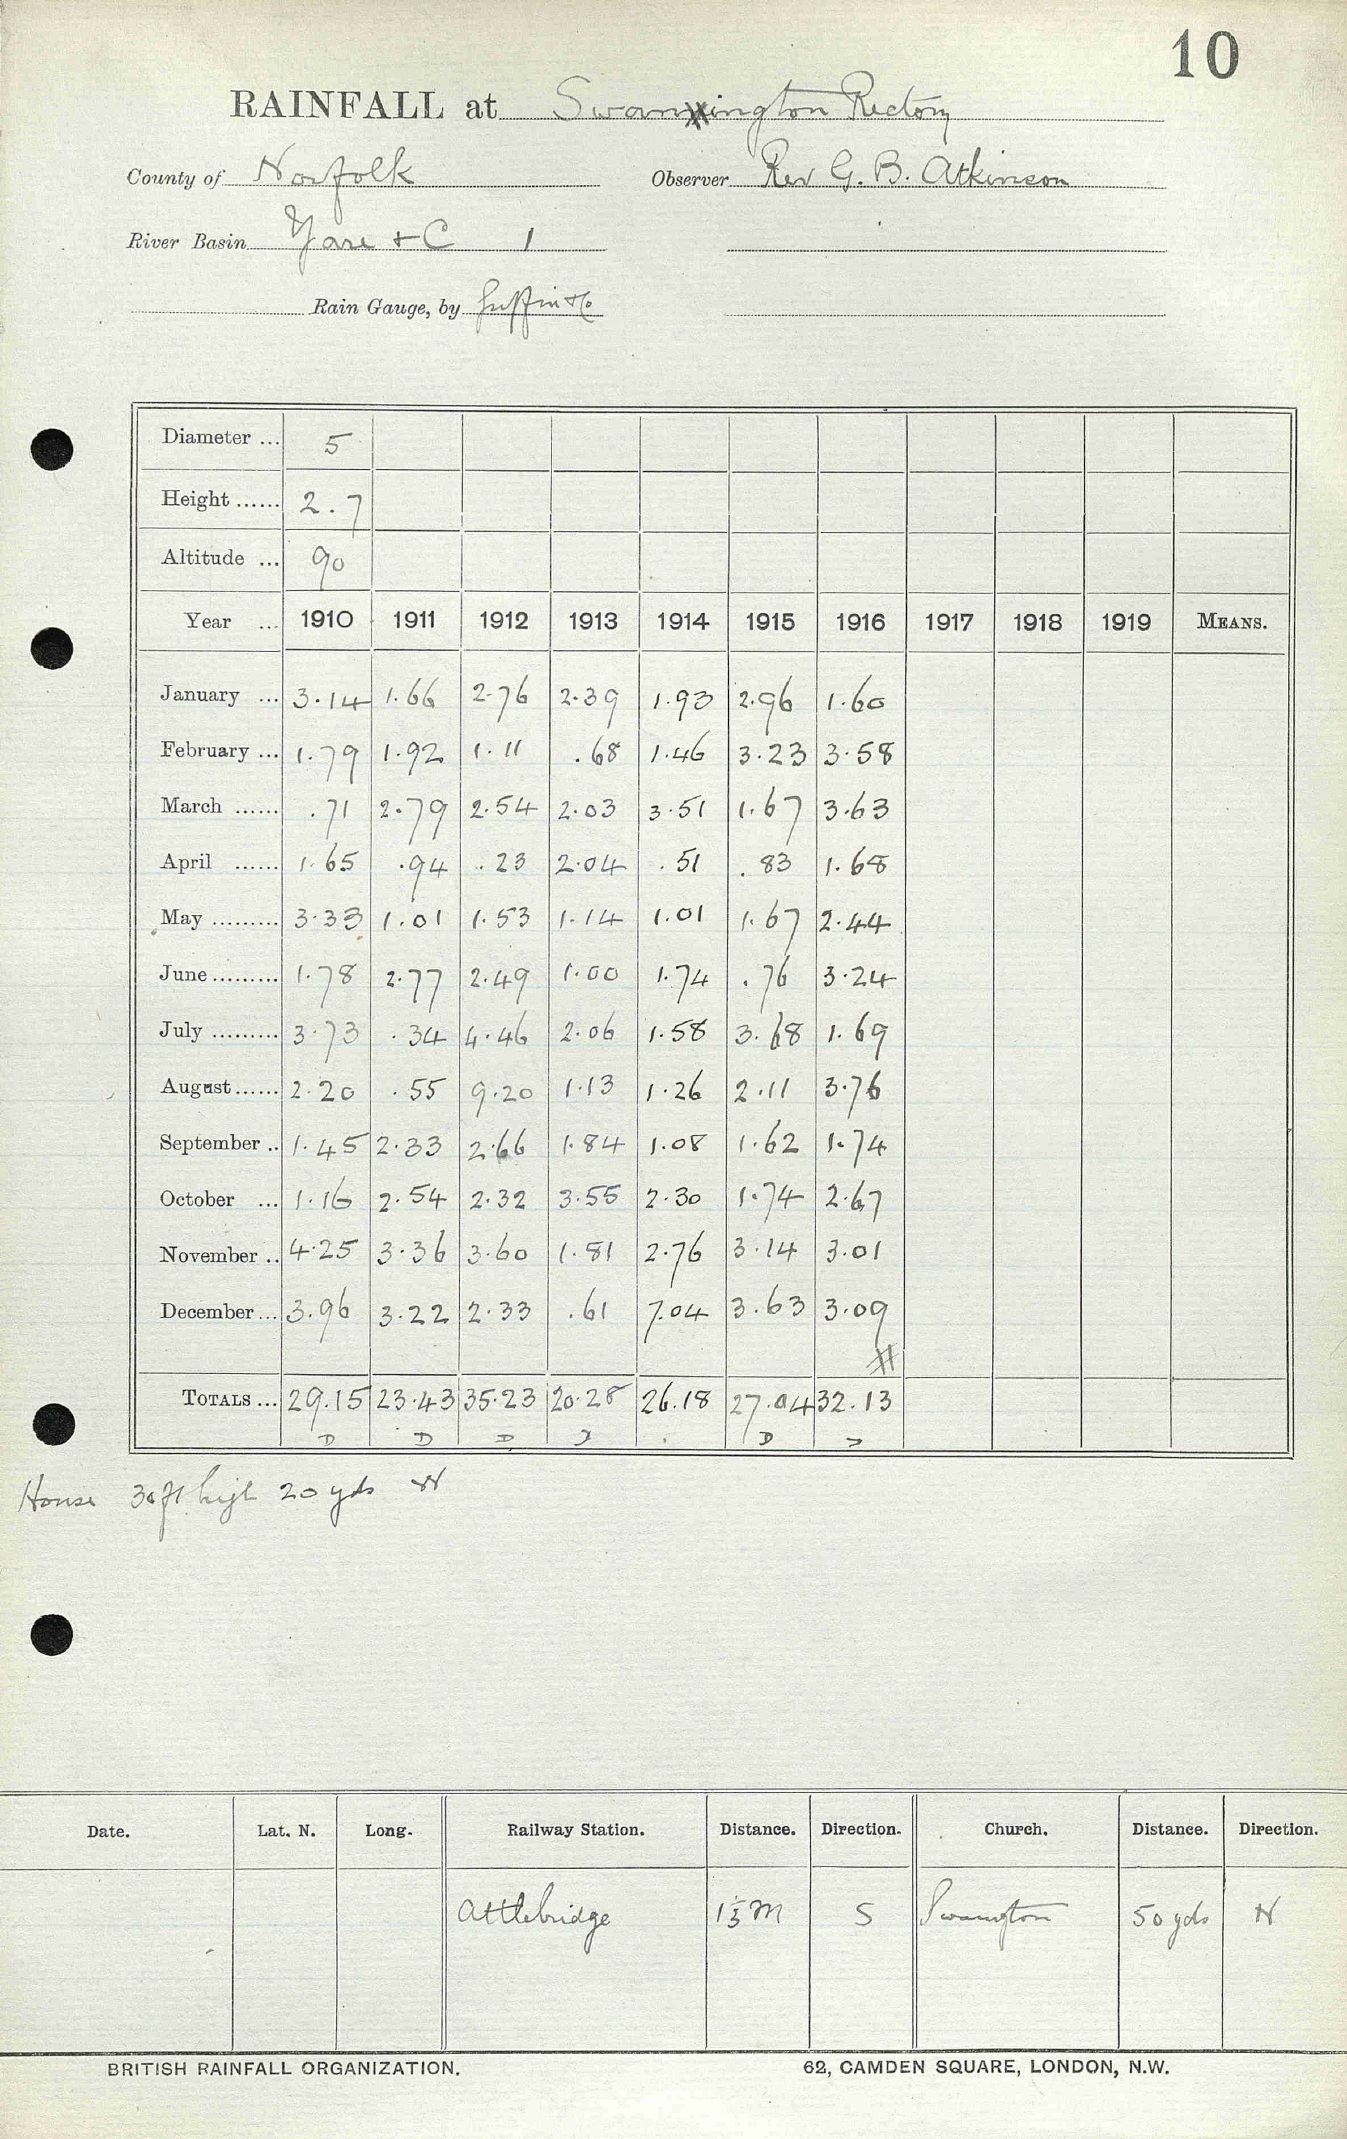 10
RAINFALL at Swannington Rectory
County of Norfolk Observer Rev G. B. Atkinson
River Basin Yare + C 1
Rain Gauge, by Griffin & Co
Diameter ... 5
Height ...... 2.7
Altitude ... 90
Year ... 1910 1911 1912 1913 1914 1915 1916 1917 1918 1919 MEANS.
January ... 3.14 1.66 2.76 2.39 1.93 2.96 1.60
February ... 1.79 1.92 1.11 .68 1.46 3.23 3.58
March ...... .71 2.79 2.54 2.03 3.51 1.67 3.63
April ...... 1.65 .94 .23 2.04 .51 .83 1.68
May ......... 3.33 1.01 1.53 1.14 1.01 1.67 2.44
June ......... 1.78 2.77 2.49 1.00 1.74 .76 3.24
July ......... 3.73 .34 4.46 2.06 1.58 3.68 1.69
August ...... 2.20 .55 9.20 1.13 1.26 2.11 3.76
September .. 1.45 2.33 2.66 1.84 1.08 1.62 1.74
October ... 1.16 2.54 2.32 3.55 2.30 1.74 2.67
November .. 4.25 3.36 3.60 1.81 2.76 3.14 3.01
December ... 3.96 3.22 2.33 .61 7.04 3.63 3.09
TOTALS ... 29.15 23.43 35.23 20.28 26.18 27.04 32.13
D D D D D
House 30ft high 20 yds W
Date. Lat. N. Long. Railway Station. Distance. Direction. Church. Distance. Direction.
Attlebridge 1½ M S Swannington 50 yds N
BRITISH RAINFALL ORGANIZATION. 62, CAMDEN SQUARE, LONDON, N.W.